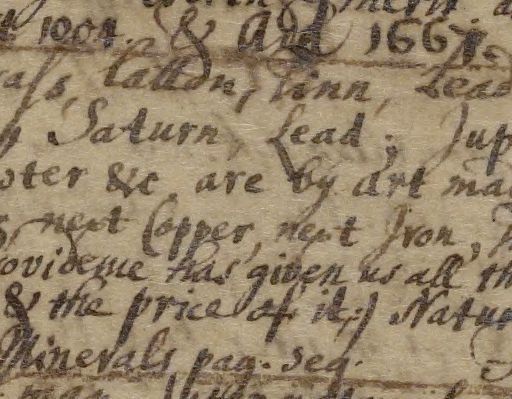 1004. & Ard 1667.
ass, Latton, Tinn, Lead
Saturn, Lead; Jup
wter &c are by Art ma
next Copper, next Iron,
rovidence has given us all th
& the price of it;) Natur
Minerals pag. seq.